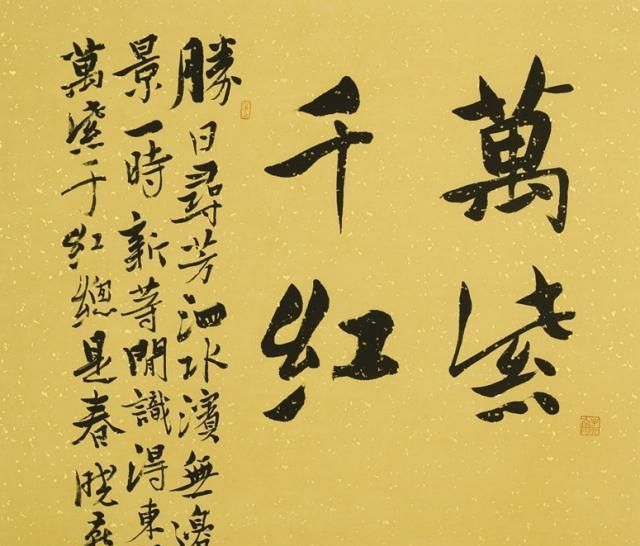 萬紫
千紅
勝日尋芳泗水濱無邊
景一時新等閒識得東
萬紫千紅總是春曉